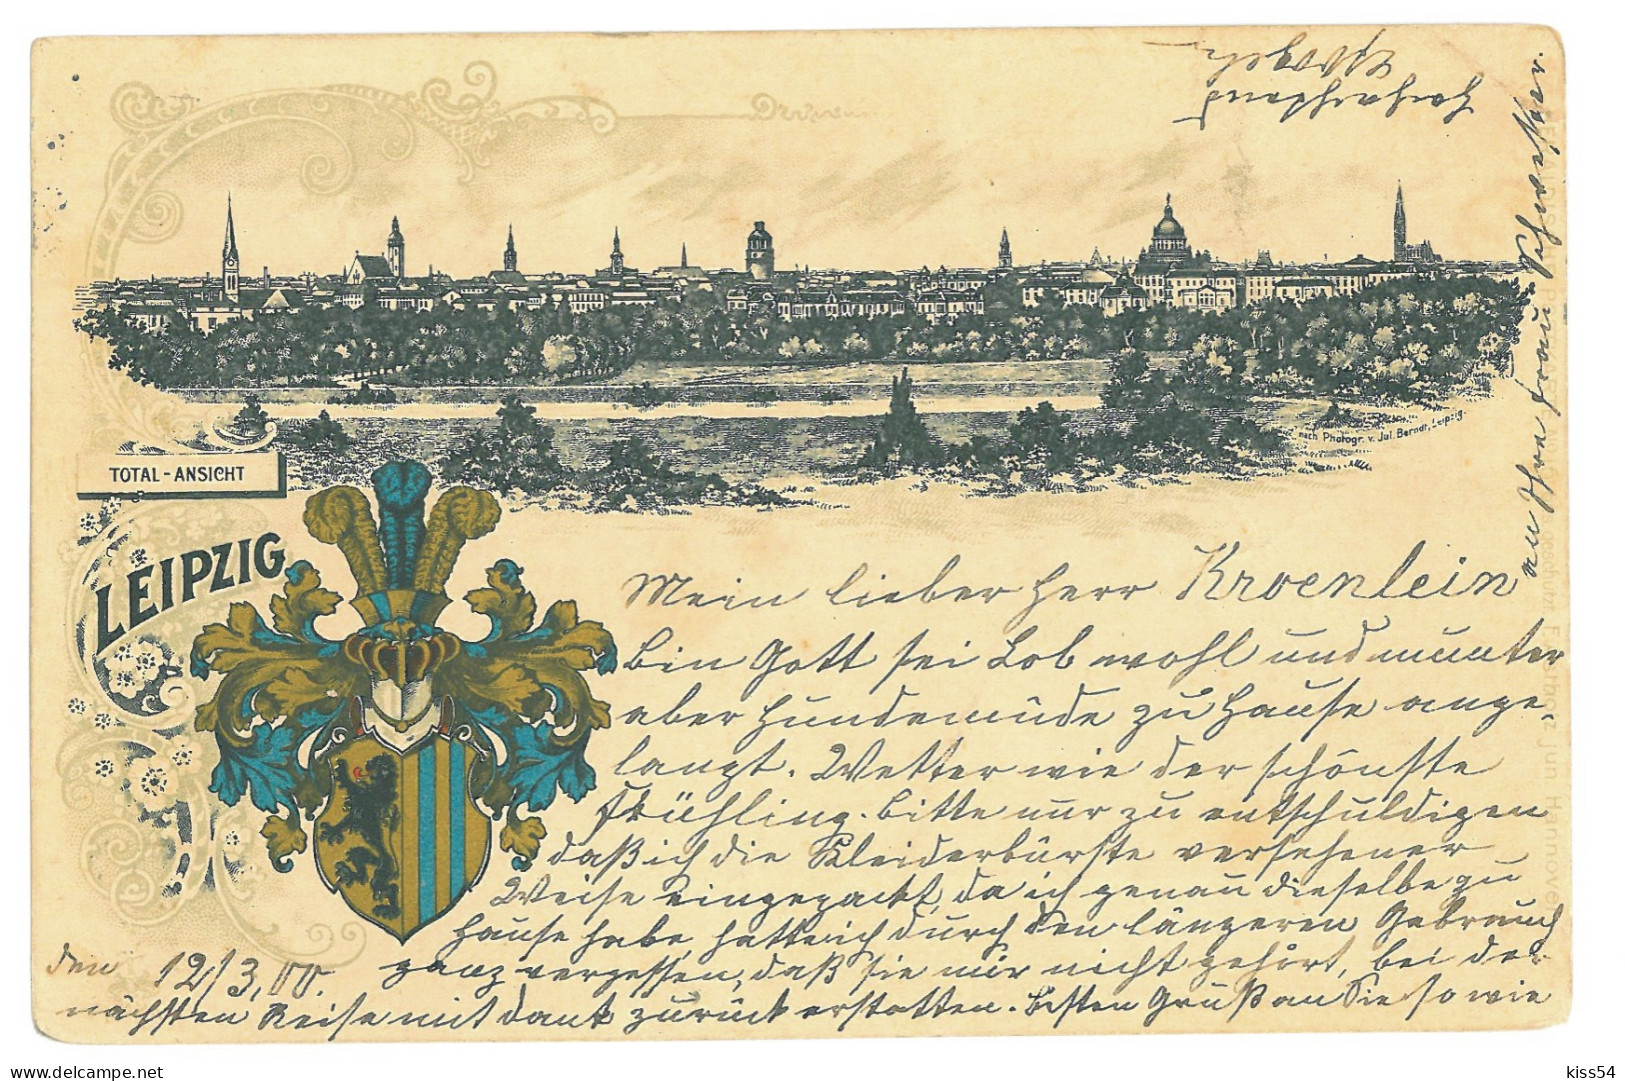 TOTAL-ANSICHT
LEIPZIG
nach Photogr. v. Jul. Berndt, Leipzig.
Mein lieber Herr Kroenlein
bin Gott sei Lob wohl und munter
aber hundemüde zu Hause ange-
langt. Wetter wie der schönste
Frühling. bitte nur zu entschuldigen
daß ich die Kleiderbürste versehener
Weise eingepackt, da ich genau dieselbe zu
Hause habe, hatte ich durch den längeren Gebrauch
den 12/3,00. ganz vergessen, daß sie mir nicht gehört, bei der
nächsten Reise mit dank zurück erstatten. besten Gruß an Sie so wie
an Ihre Frau Schwester.
Hochachtend
kiss54